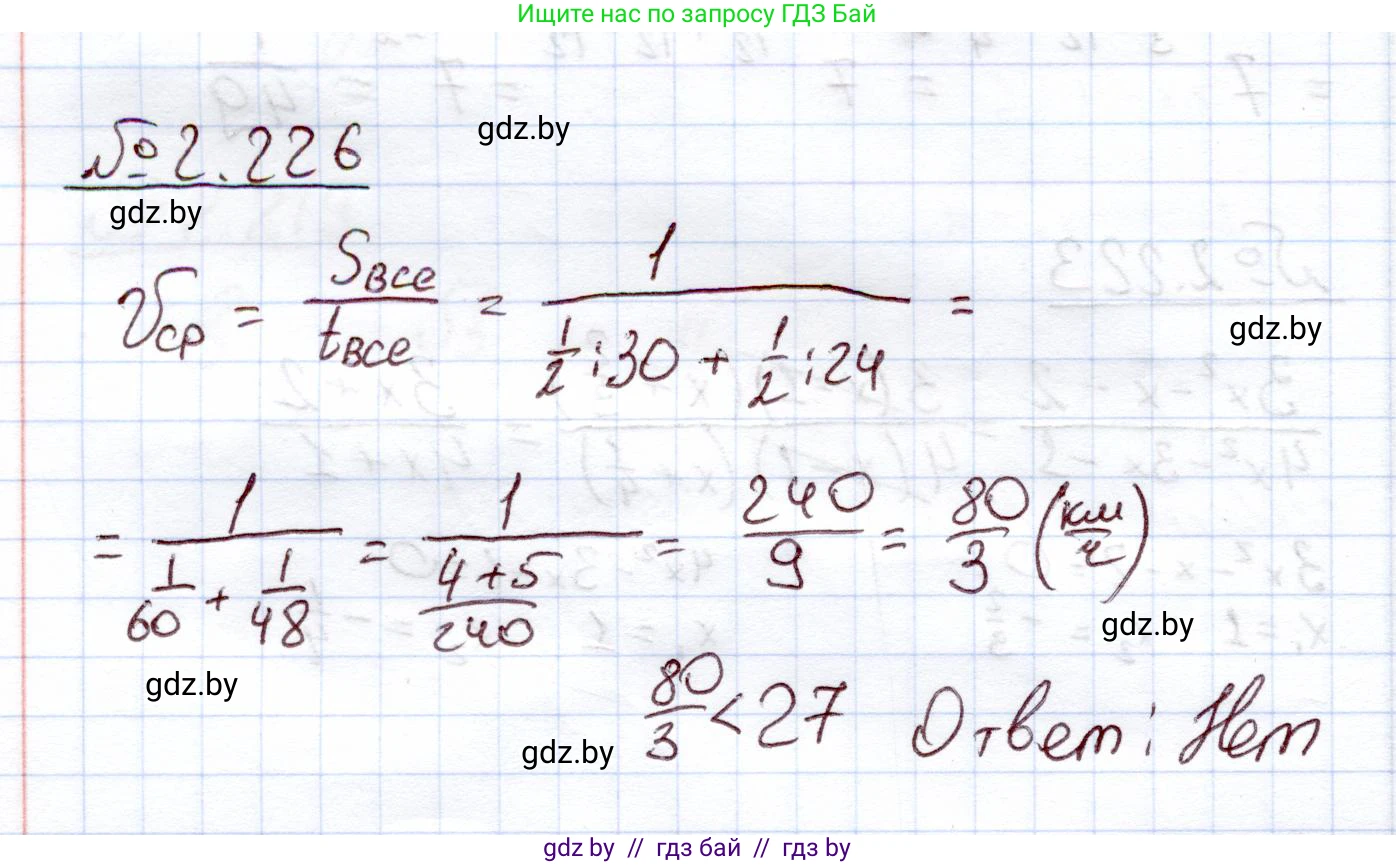 Ищите нас по запросу ГДЗ Бай
№ 2.226
gdz.by
gdz.by
υср = Sвсе / tвсе = 1 / (1/2 : 30 + 1/2 : 24) =
gdz.by
= 1 / (1/60 + 1/48) = 1 / ((4+5)/240) = 240/9 = 80/3 (км/ч)
gdz.by
gdz.by
80/3 < 27 Ответ: Нет
gdz.by
gdz by // гдз бай // гдз by